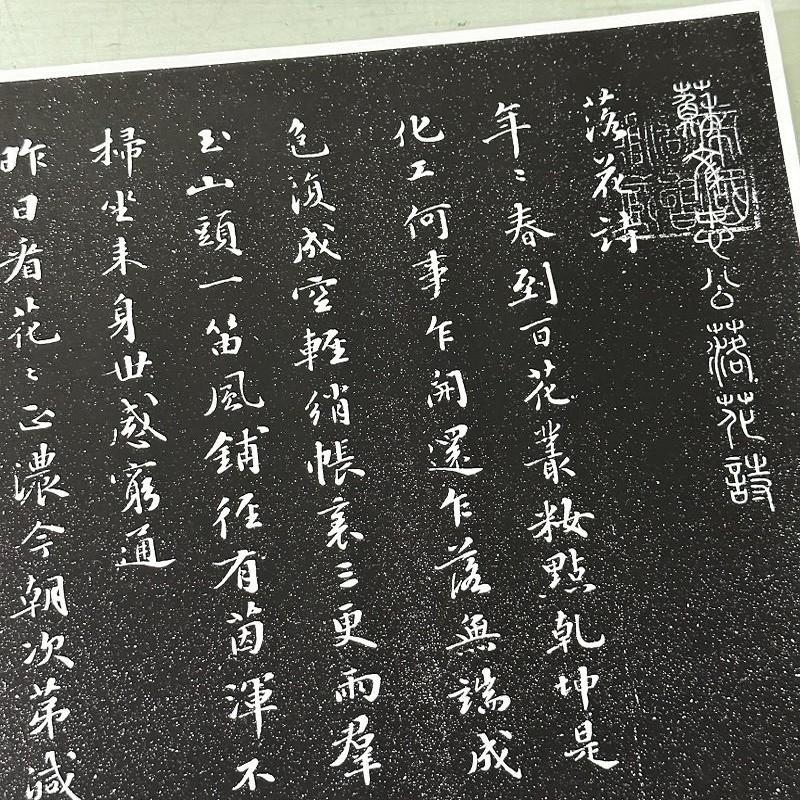 蘇文忠公落花詩
落花詩
年〻春到百花叢粧點乾坤是
化工何事乍開還乍落無端成
色復成空輕綃帳裏三更雨羣
玉山頭一笛風鋪徑有茵渾不
掃坐来身世感窮通
昨日看花〻正濃今朝次第減